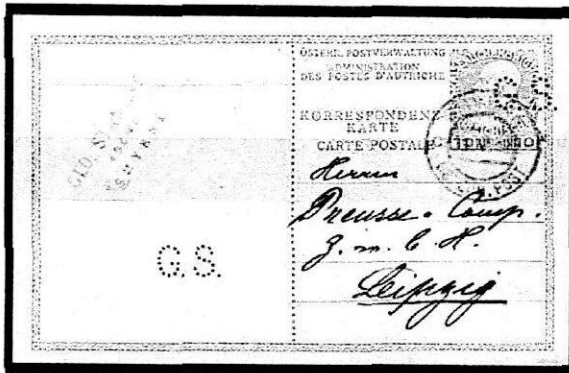 ÖSTERR. POSTVERWALTUNG
ADMINISTRATION
DES POSTES D'AUTRICHE
KORRESPONDENZ-
KARTE
CARTE POSTALE
Herrn
Preusse & Comp.
G. m. b. H.
Leipzig
G.S.
SMYRNA